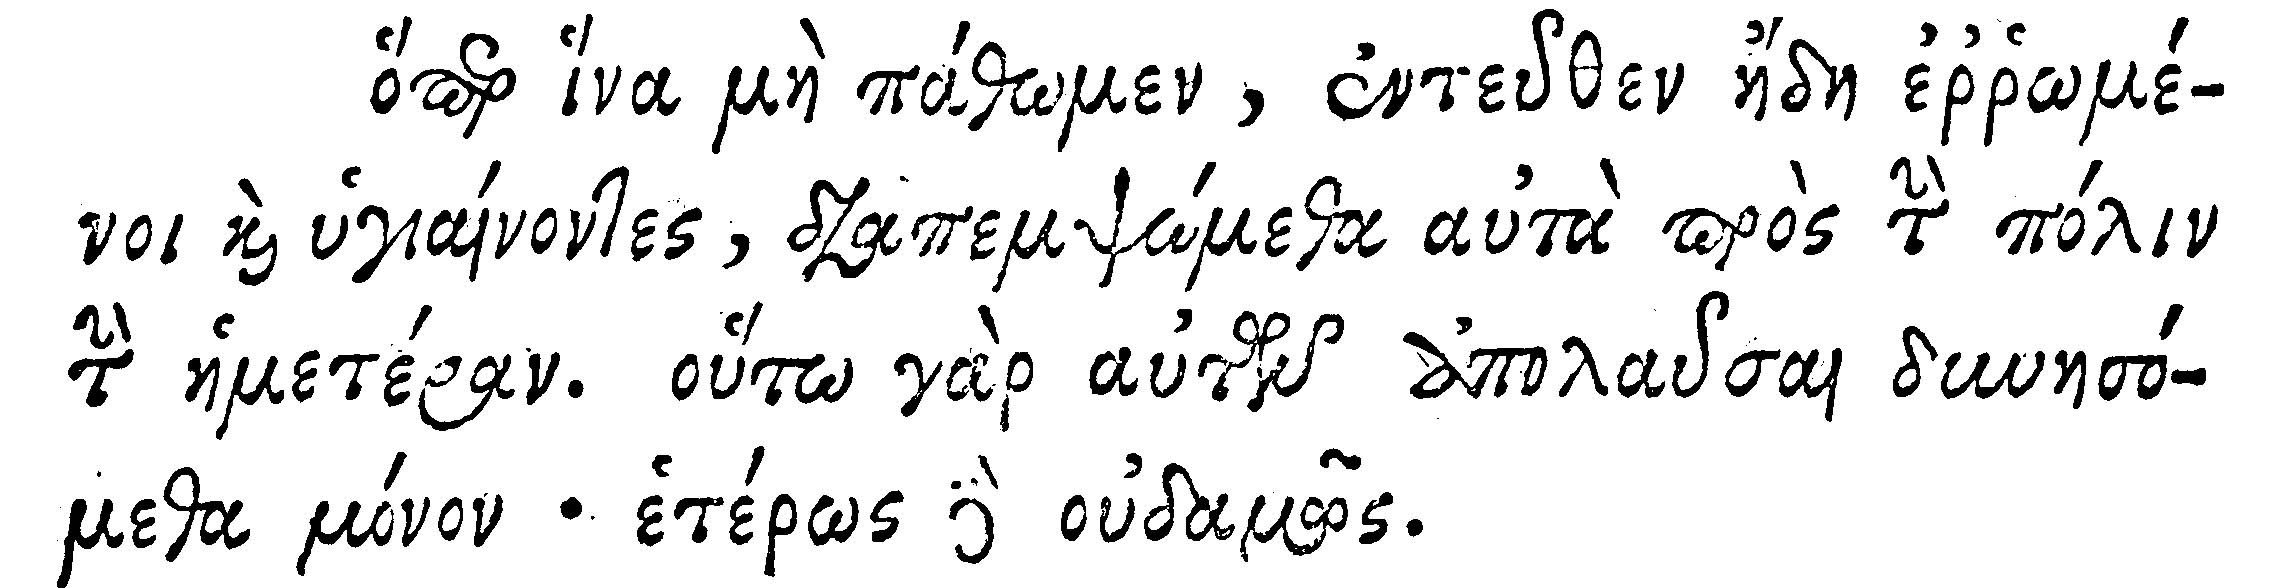 ὅπερ ἵνα μὴ πάθωμεν, ἐντεῦθεν ἤδη ἐῤῥωμέ-
νοι καὶ ὑγιαίνοντες, διαπεμψώμεθα αὐτὰ πρὸς τὴν πόλιν
τὴν ἡμετέραν. οὕτω γὰρ αὐτῶν ἀπολαῦσαι δυνησό-
μεθα μόνον · ἑτέρως δὲ οὐδαμῶς.